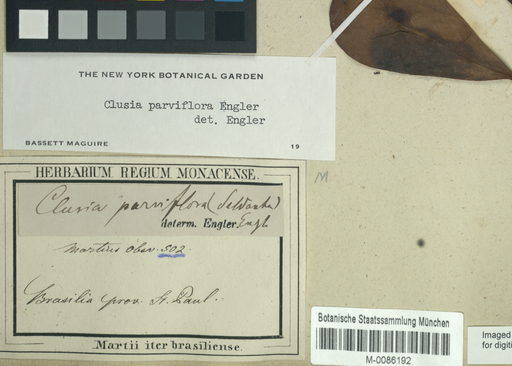 THE NEW YORK BOTANICAL GARDEN
Clusia parviflora Engler
det. Engler
BASSETT MAGUIRE 19
HERBARIUM REGIUM MONACENSE.
M
Clusia parviflora (Saldanha)
determ. Engler. Engl.
Martius Obsv. 502.
Brasilia prov. St. Paul.
Martii iter brasiliense.
Botanische Staatssammlung München
M-0086192
Imaged
for digiti